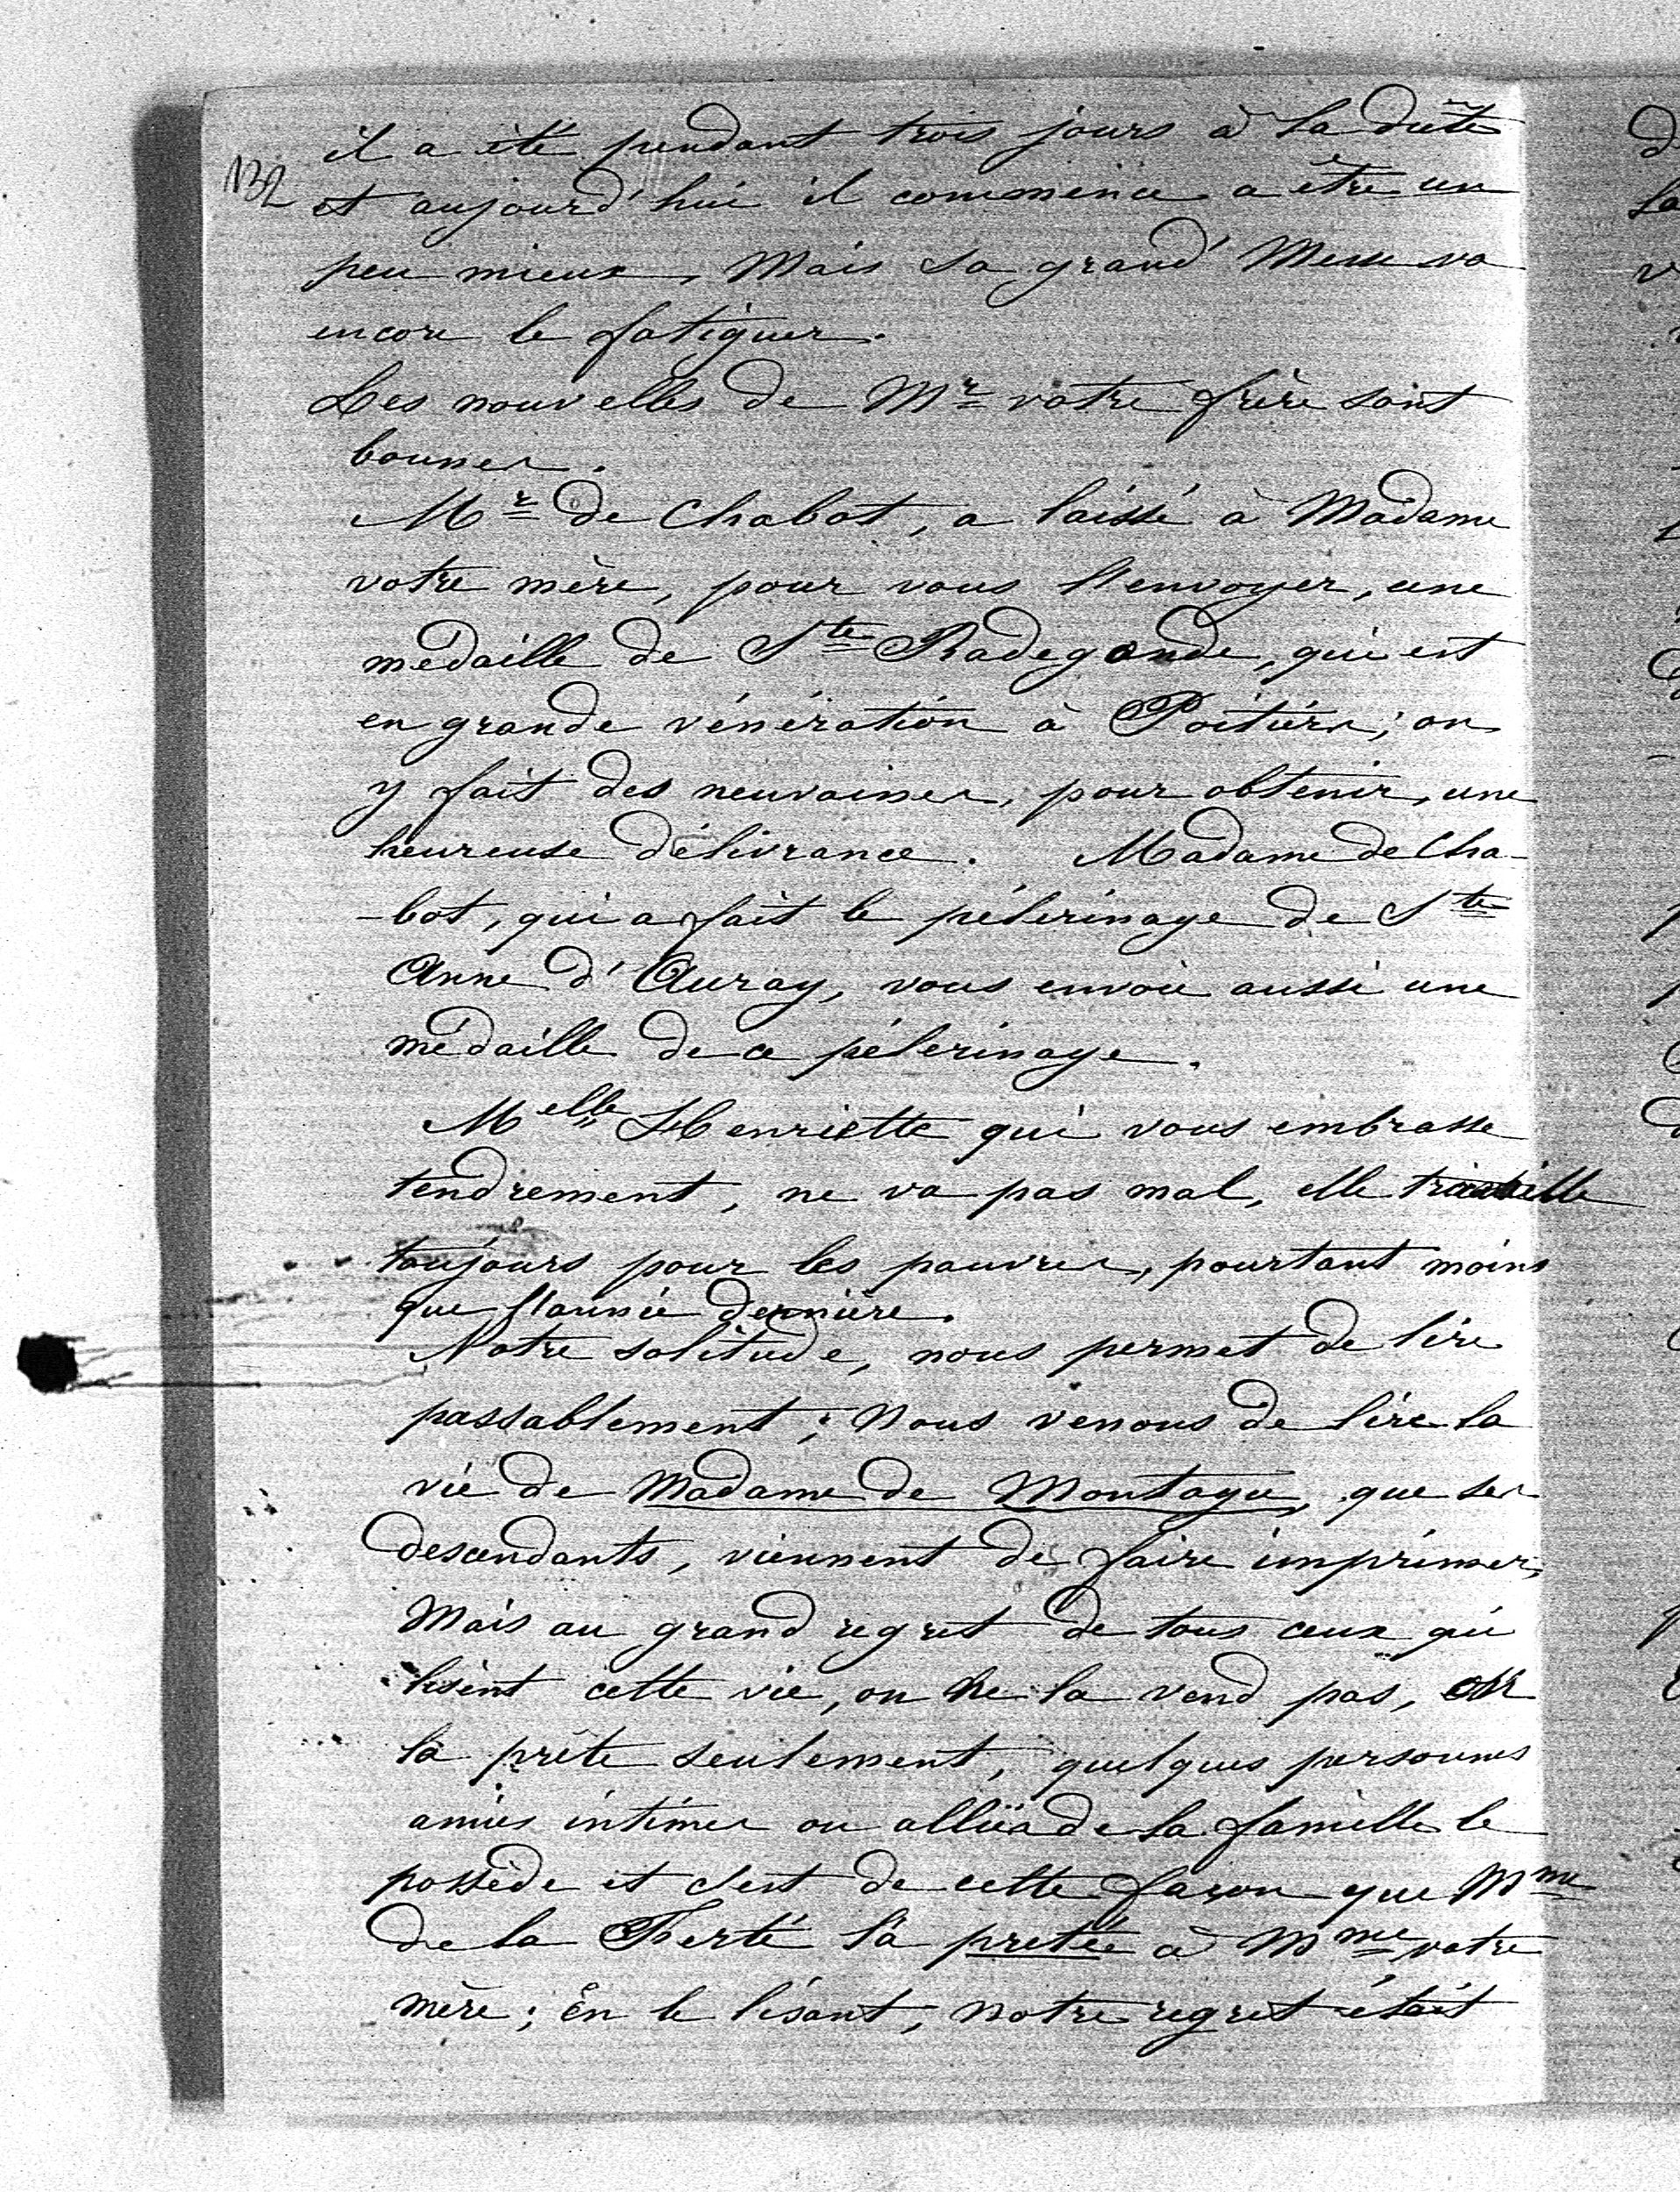 132
il a été pendant trois jours à la diète
et aujourd'hui il commence a être un
peu mieux, Mais sa grand' Messe va
encore le fatiguer.
Les nouvelles de Mr votre frère sont
bonnes.
Mr de Chabot, a laissé à Madame
votre mère, pour vous l'envoyer, une
médaille de Ste Radegonde, qui est
en grande vénération à Poitiers; on
y fait des neuvaines, pour obtenir, une
heureuse délivrance. Madame de Cha-
-bot, qui a fait le pélerinage de Ste
Anne d'Auray, vous envoie aussi une
médaille de ce pélerinage.
Melle Henriette qui vous embrasse
tendrement, ne va pas mal, elle travaille
toujours pour les pauvres, pourtant moins
que l'année dernière.
Notre solitude, nous permet de lire
passablement; Nous venons de lire la
vie de Madame de Montagu, que ses
descendants, viennent de faire imprimer,
Mais au grand regret de tous ceux qui
lisent cette vie, on ne la vend pas, on
la prête seulement, quelques personnes
amies intimes ou alliés de la famille le
possède et c'est de cette façon que Mme
de la Ferté l'a pretée à Mme votre
mère; En le lisant, notre regret était